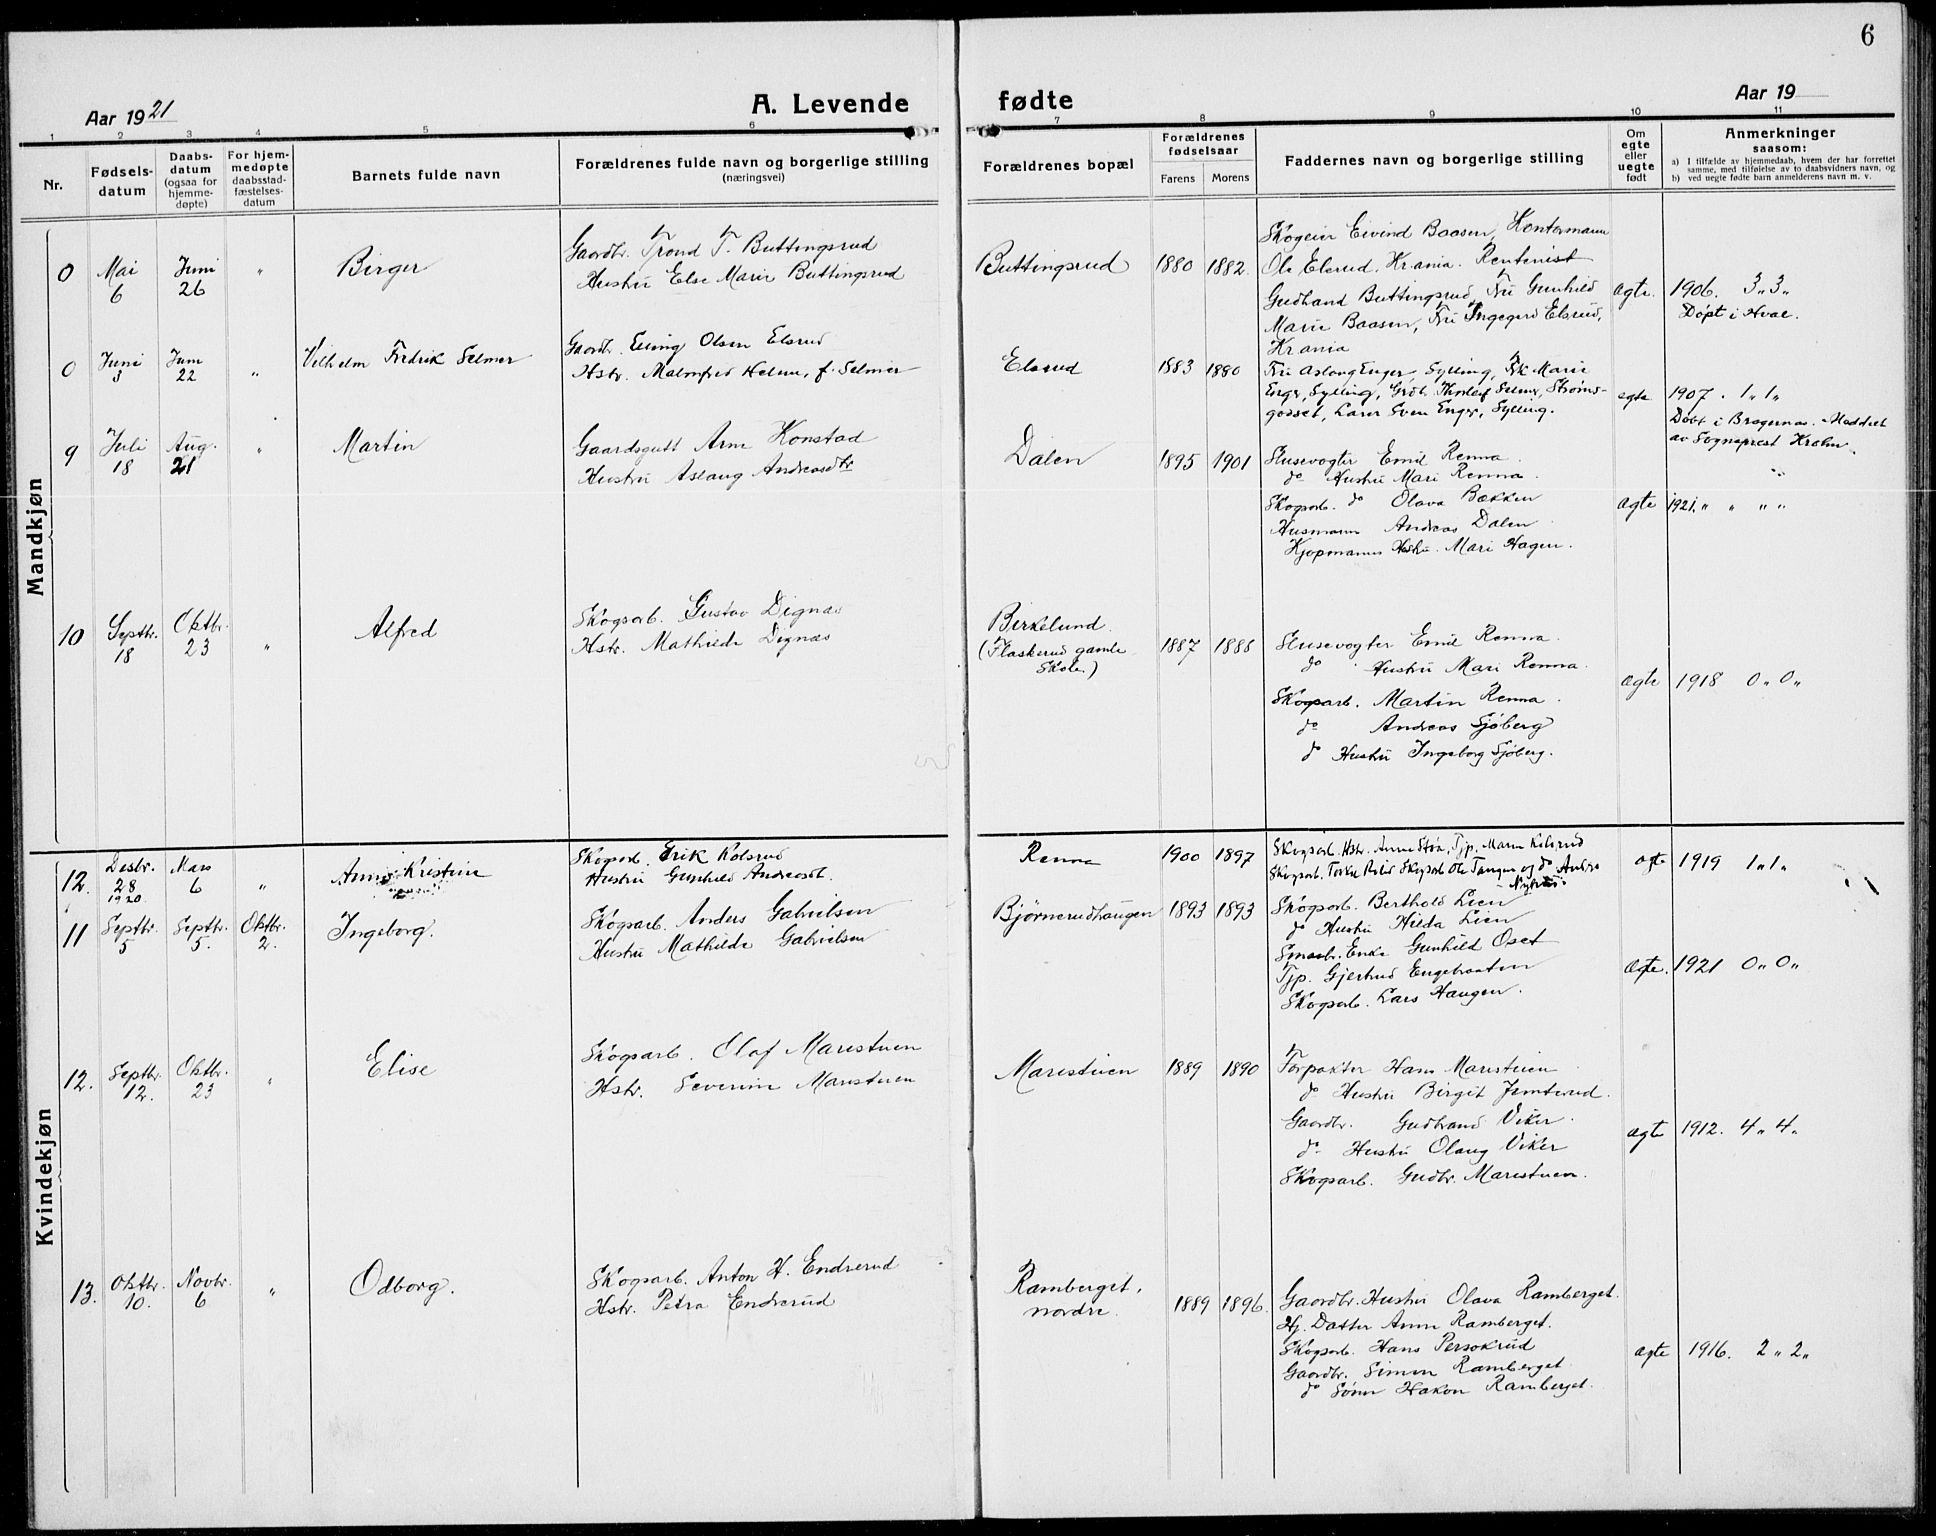 6
Aar 1921
A. Levende
fødte
Aar 19
1 2 3 4 5 6 7 8 9 10 11
Nr.
Fødsels-
datum
Daabs-
datum
(ogsaa for
hjemme-
døpte)
For hjem-
medøpte
daabsstad-
fæstelses-
datum
Barnets fulde navn
Forældrenes fulde navn og borgerlige stilling
(næringsvei)
Forældrenes bopæl
Forældrenes
fødselsaar
Farens Morens
Faddernes navn og borgerlige stilling
Om
egte
eller
uegte
født
Anmerkninger
saasom:
a) I tilfælde av hjemmedaab, hvem der har forrettet
samme, med tilføielse av to daabsvidners navn, og
b) ved uegte fødte barn anmelderens navn m. v.
Mandkjøn
0 Mai 6 Juni 26 " Birger
Gaardbr. Trond T. Buttingsrud
Hustru Else Marie Buttingsrud
Buttingsrud 1880 1882.
Skogeier Eivind Baasen, Kontormann
Ole Elsrud, Krania. Rentenist
Gudbrand Buttingsrud, Fru Gunhild
Marie Baasen, Fru Ingegerd Elsrud,
Krania
ægte. 1906. 3 " 3 "
Døpt i Hval.
0 Juni 3 Juni 22 " Vilhelm Fredrik Selmer
Gaardbr. Elling Olsen Elsrud
Hstr. Malmfred Helene, f. Selmer
Elsrud 1883 1880
Fru Aslaug Enger, Sylling, Frk Marie
Enger, Sylling, Grdbr. Thorleif Selmer, Strøms-
godset, Lærer Sven Enger, Sylling.
egte 1907. 1 " 1 "
Døbt i Bragernæs. Meddelt
av Sogneprest Krohn.
9 Juli 18 Aug. 21 " Martin
Gaardsgutt Arne Konstad
Hustru Aslaug Andreasdtr
Dalen 1895 1901
Slusevogter Emil Renna.
do Hustru Mari Renna.
Skogsarb. do Olava Bækken
Husmann Andreas Dalen
Kjøpmanns Hustru. Mari Hagen.
ægte 1921. " " " "
10 Septbr. 18 Oktbr. 23 " Alfred
Skogsarb. Gustav Dignæs
Hstr. Mathilde Dignæs
Birkelund.
(Flaskerud gamle
Skole.)
1887 1888
Slusevogter Emil Renna.
do Hustru Mari Renna.
Skogsarb. Martin Renna.
do Andreas Sjøberg
do Hustru Ingeborg Sjøberg.
ægte 1918 0 " 0 "
Kvindekjøn
12. Desbr. 28 1920. Mars 6 " Anne Kristine
Skogsarb. Erik Kolsrud
Hustru Gunhild Andreasdt.
Renna 1900 1897
Skogsarb. Hstr. Anne Støa, Tjp. Maren Kolsrud
Skogsarb. Skogsarb. Ole Tangen og do
ægte 1919 1 " 1 "
11 Septbr. 5 Septbr. 5. Oktbr. 2. Ingeborg.
Skogsarb. Anders Gabrielsen
Hustru Mathilde Gabrielsen
Bjørnerudhaugen 1893 1893
Skogsarb. Berthold Lien
do Hustru Hilda Lien
Smaabr. Enke Gunhild Oset
Tjp. Gjertrud Engebraaten
Skogsarb. Lars Haugen.
ægte. 1921 0 " 0 "
12. Septbr. 12. Oktbr. 23 " Elise
Skogsarb. Olaf Marestuen
Hstr. Severine Marestuen
Marestuen 1889 1890
Forpakter Hans Marestuen
do Hustru Birgit Jemterud.
Gaardbr. Gudbrand Viker.
do Hustru Olaug Viker
Skogsarb. Gudbr. Marestuen.
ægte 1912. 4 " 4 "
13. Oktbr. 10. Novbr. 6 " Odborg.
Skogsarb. Anton H. Endrerud
Hstr. Petra Endrerud
Ramberget,
nordre.
1889 1896.
Gaardbr. Hustru Olava Ramberget.
Hj. Datter Anne Ramberget.
Skogsarb. Hans Persokrud
Gaardbr. Simen Ramberget.
do Sønn Hakon Ramberget.
ægte 1916. 2 " 2 "